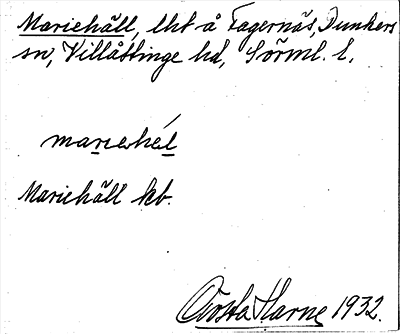 Mariehäll, lht å Fagernäs, Dunkers
sn, Villåttinge hd, Sörml. l.
mariehél
Mariehäll kb.
Gösta Harne 1932.